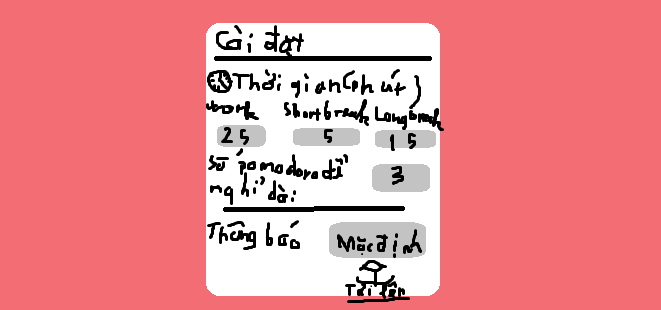 Cài đặt
Thời gian (phút)
work short break Long break
25 5 15
Số pomodoro để nghỉ dài 3
Thông báo Mặc định
Tải lên